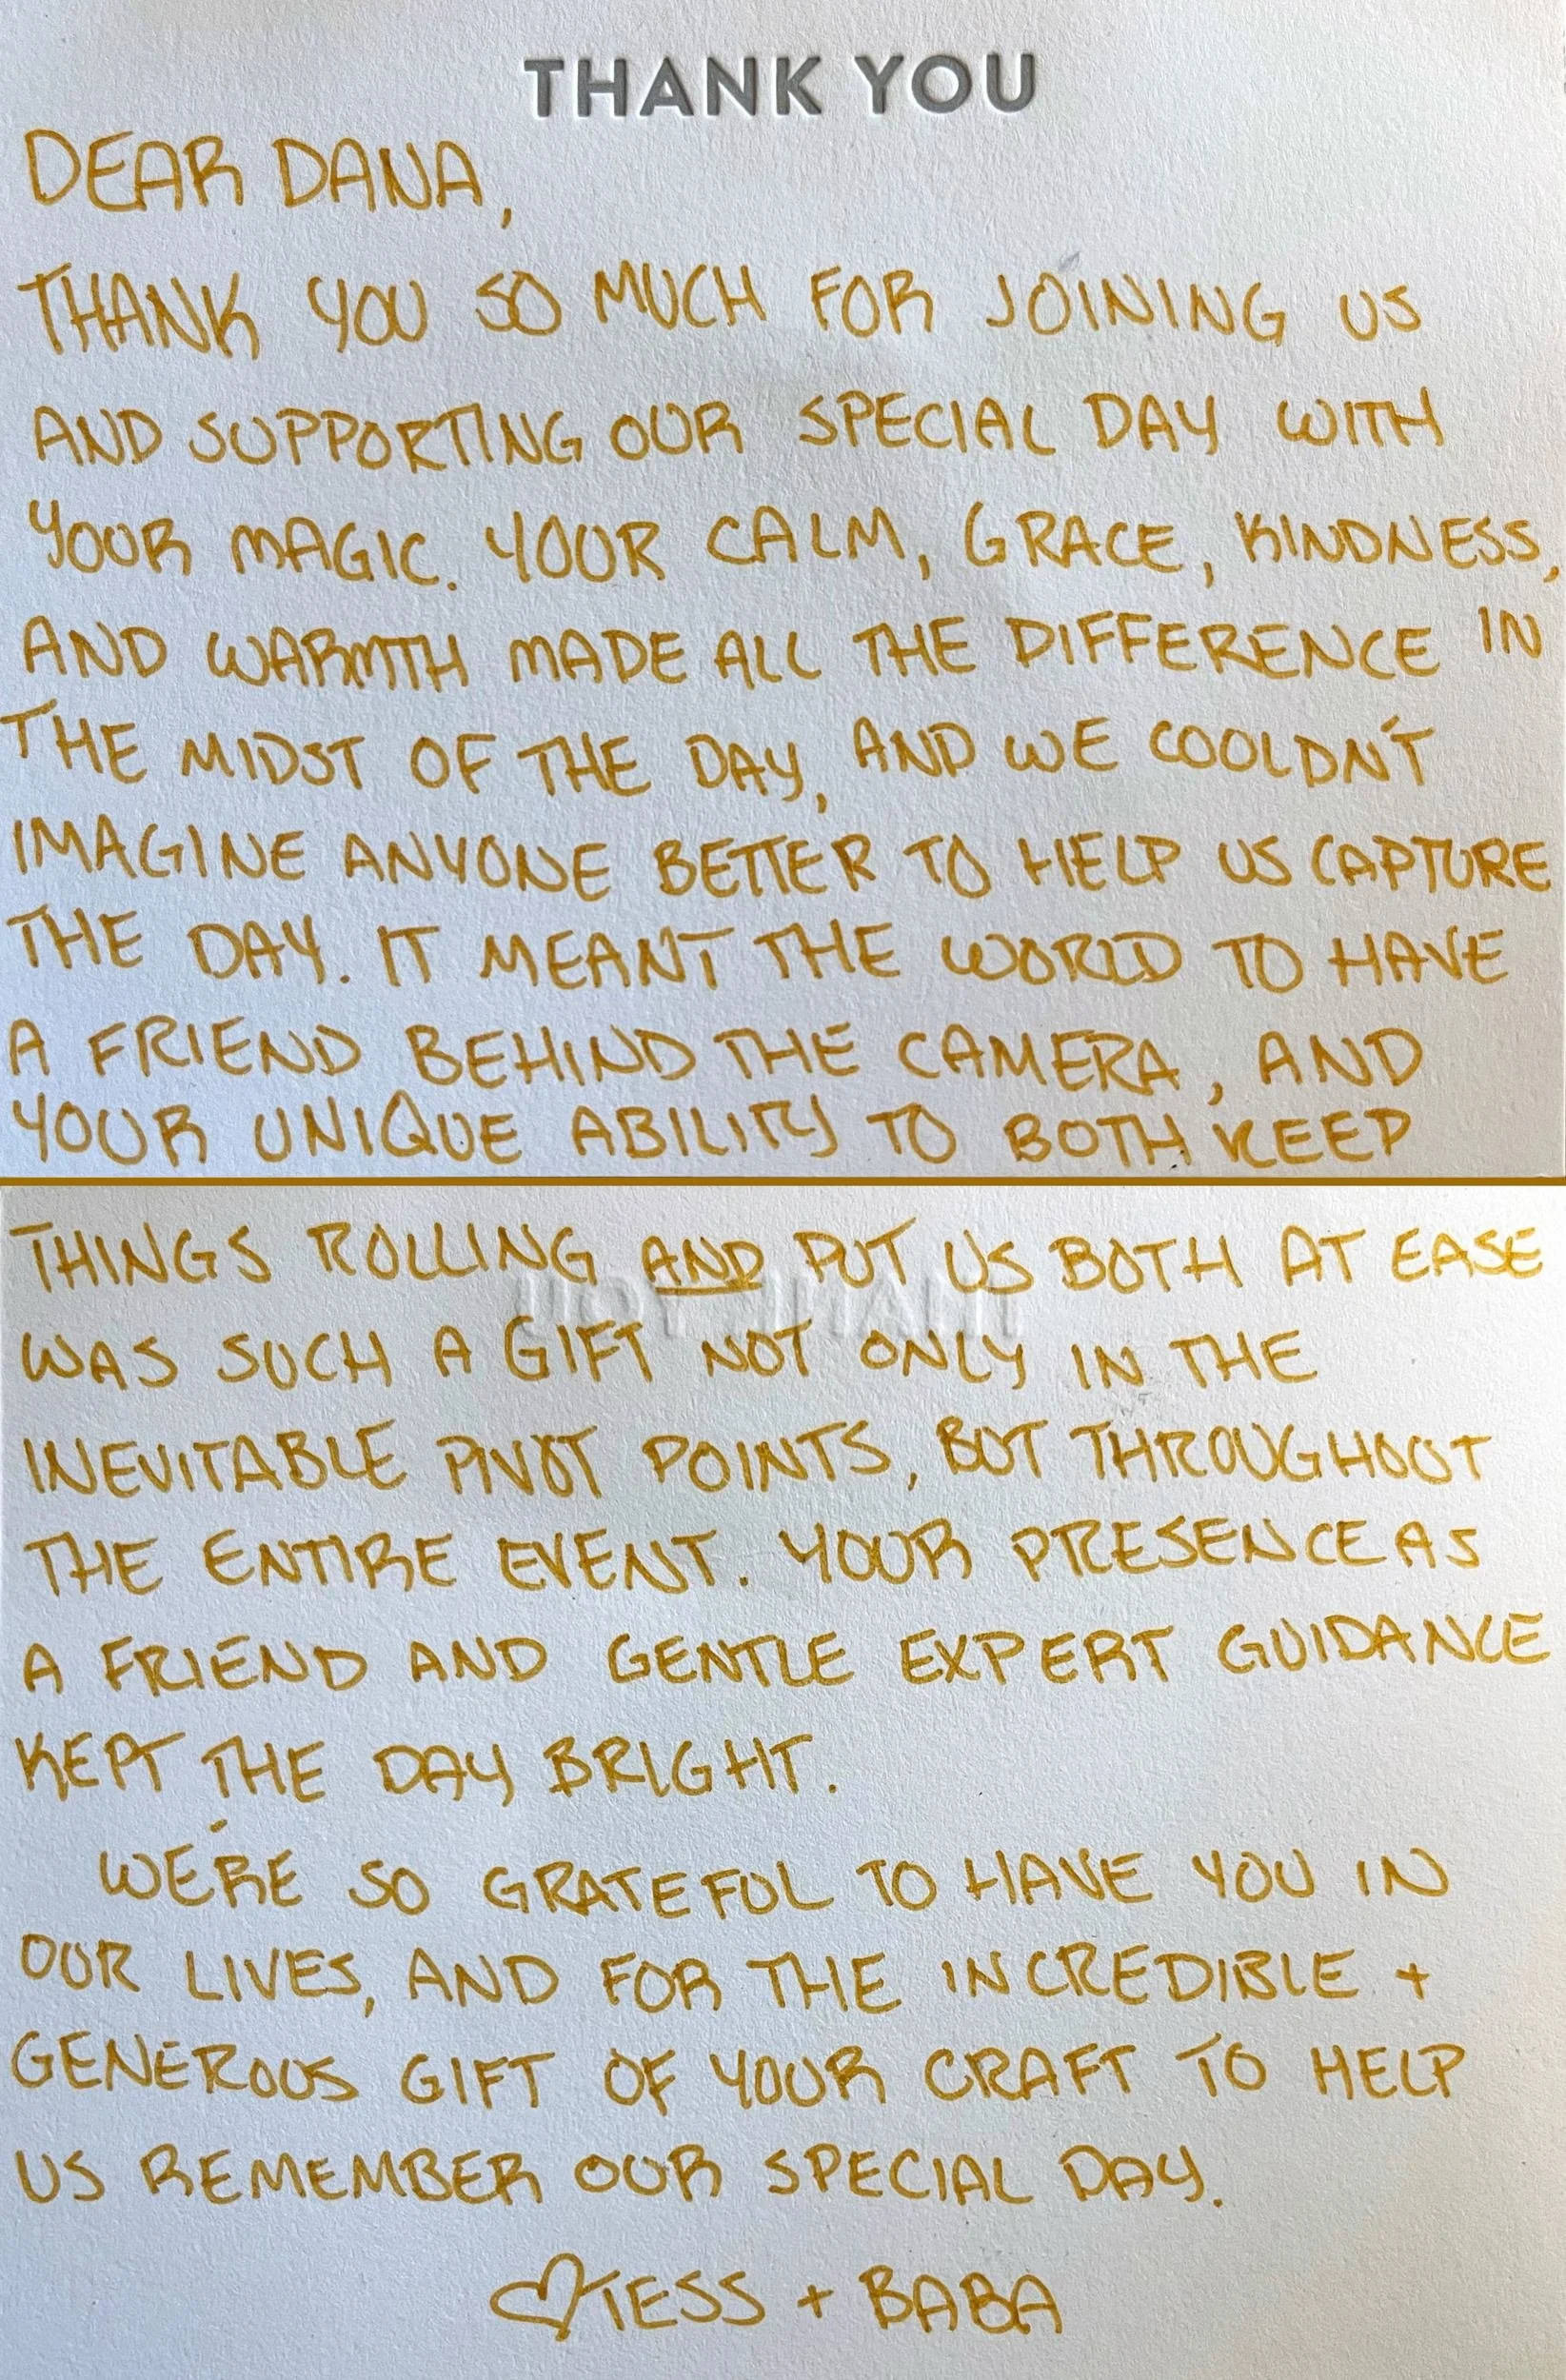 THANK YOU
DEAR DANA,
THANK YOU SO MUCH FOR JOINING US
AND SUPPORTING OUR SPECIAL DAY WITH
YOUR MAGIC. YOUR CALM, GRACE, KINDNESS,
AND WARMTH MADE ALL THE DIFFERENCE IN
THE MIDST OF THE DAY, AND WE COULDN'T
IMAGINE ANYONE BETTER TO HELP US CAPTURE
THE DAY. IT MEANT THE WORLD TO HAVE
A FRIEND BEHIND THE CAMERA, AND
YOUR UNIQUE ABILITY TO BOTH KEEP
THINGS ROLLING AND PUT US BOTH AT EASE
WAS SUCH A GIFT NOT ONLY IN THE
INEVITABLE PIVOT POINTS, BUT THROUGHOUT
THE ENTIRE EVENT. YOUR PRESENCE AS
A FRIEND AND GENTLE EXPERT GUIDANCE
KEPT THE DAY BRIGHT.
WE'RE SO GRATEFUL TO HAVE YOU IN
OUR LIVES, AND FOR THE INCREDIBLE +
GENEROUS GIFT OF YOUR CRAFT TO HELP
US REMEMBER OUR SPECIAL DAY.
♡TESS + BABA